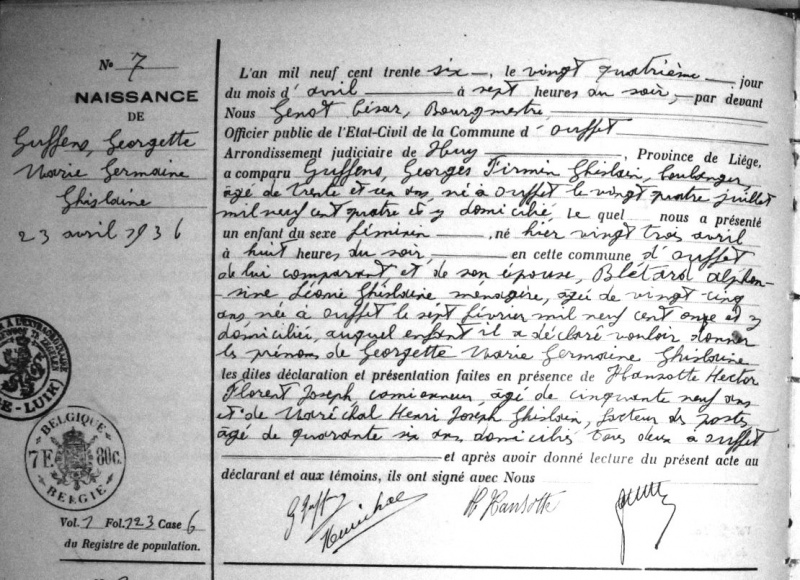 No 7
NAISSANCE
DE
Guffens, Georgette
Marie Germaine
Ghislaine
23 avril 1936
E-LUIK
BELGIQUE
7F. 80c.
BELGIE
Vol. 1 Fol. 123 Case 6
du Registre de population.
L'an mil neuf cent trente six, le vingt quatrième jour
du mois d'avril à sept heures du soir, par devant
Nous Genot César, Bourgmestre
Officier public de l'Etat-Civil de la Commune d'Ouffet
Arrondissement judiciaire de Huy Province de Liége,
a comparu Guffens, Georges Firmin Ghislain, boulanger
âgé de trente et un ans, né à Ouffet le vingt quatre juillet
mil neuf cent quatre et y domicilié, Le quel nous a présenté
un enfant du sexe féminin, né hier vingt trois avril
à huit heures du soir, en cette commune d'Ouffet
de lui comparant et de son épouse, Blétard Alphon-
sine Léonie Ghislaine ménagère, âgée de vingt cinq
ans née à Ouffet le sept février mil neuf cent onze et y
domiciliée, auquel enfant il a déclaré vouloir donner
les prénoms de Georgette Marie Germaine Ghislaine
les dites déclaration et présentation faites en présence de Hansotte Hector
Florent Joseph camionneur, âgé de cinquante neuf ans
et de Maréchal Henri Joseph Ghislain, facteur des postes
âgé de quarante six ans, domiciliés tous deux à Ouffet
et après avoir donné lecture du présent acte au
déclarant et aux témoins, ils ont signé avec Nous
G Guffens
H Hansotte
Maréchal